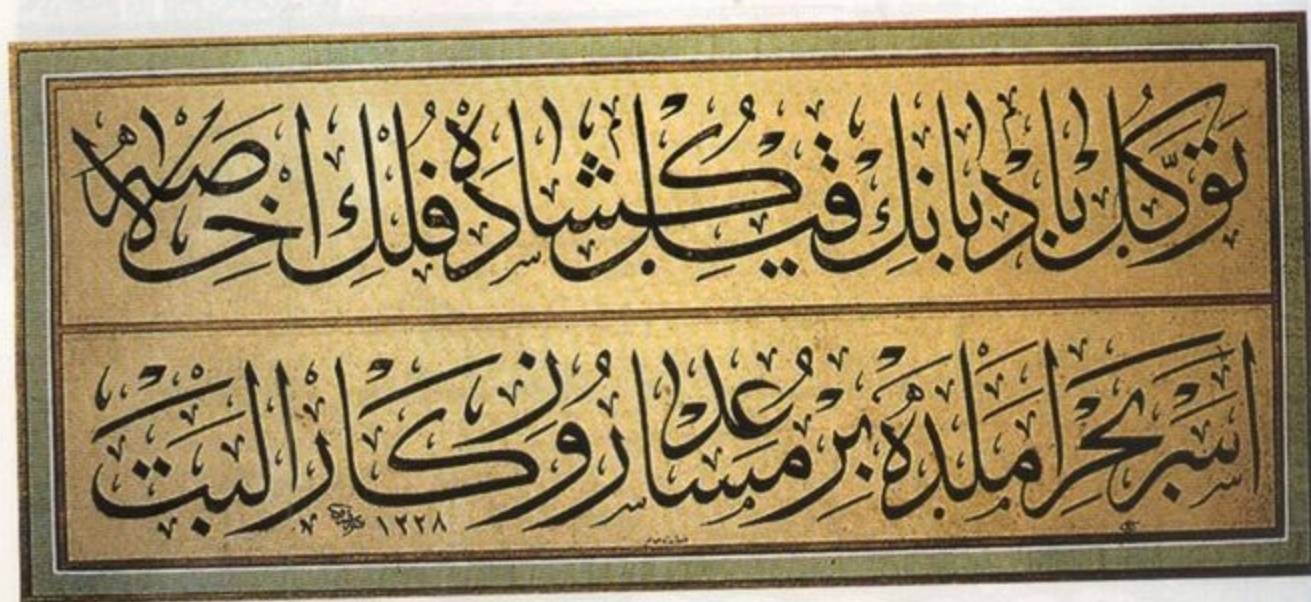 توكل بادبانك قيل كشاده فلك اخلاصه
اسر بحر املده بر مساعد روزكار البت
١٣٢٨